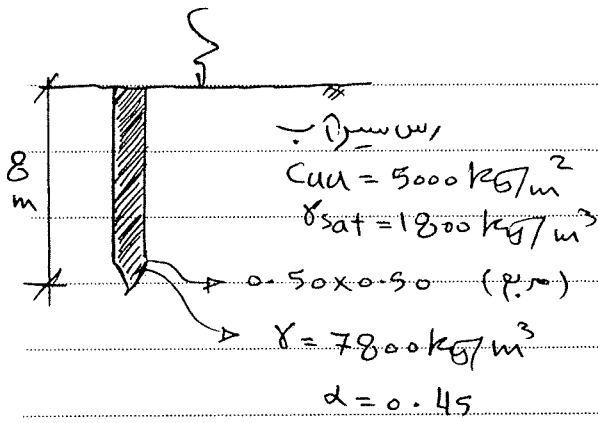 8
m
رس سیراب
Cuu = 5000 kg/m²
γsat = 1800 kg/m³
0.50 × 0.50 (مربع)
γ = 7800 kg/m³
α = 0.45